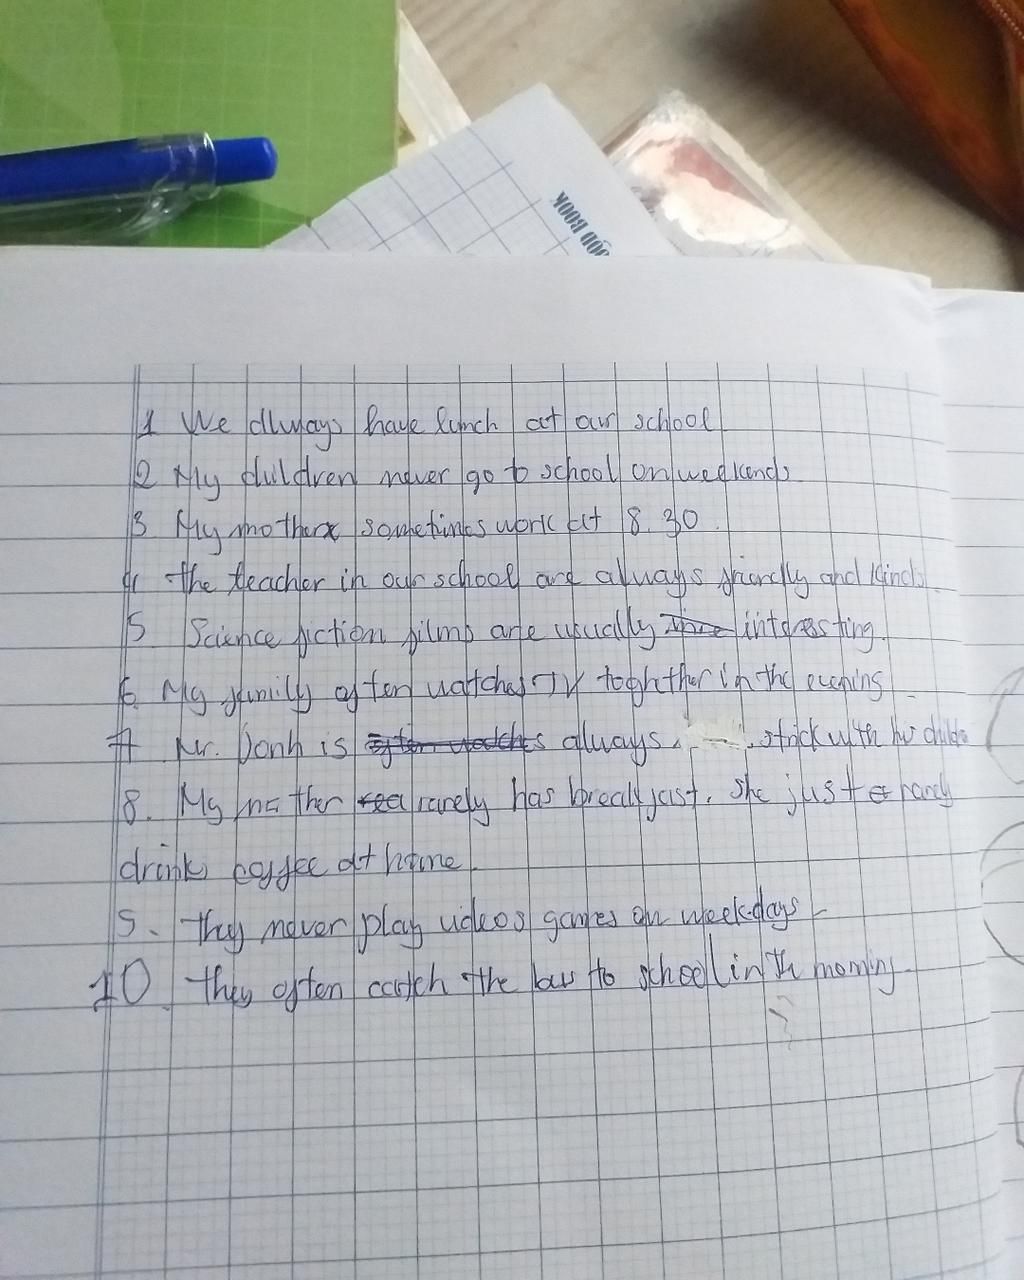 OOD BOOK
1 We always have lunch at our school
2 My children never go to school on weekends
3 My mother sometimes work at 8.30.
4 the teacher in our school are always friendly and kind.
5 Science fiction films are usually interesting.
6. My family often watches TV toghether in the evening
7 Mr. Danh is always strick with his
8. My mother rarely has breakfast. She just
drink coffee at home.
9. they never play videos games on weekdays
10. they often catch the bus to school in the morning